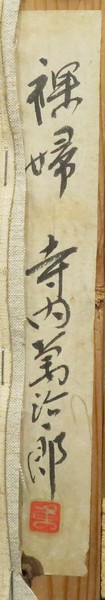 裸婦 寺内萬治郎
萬